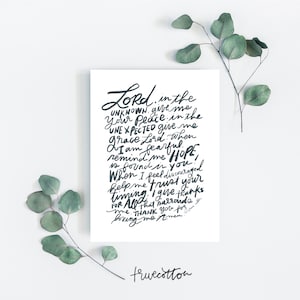 Lord, in the
UNKNOWN give me
your Peace in the
UNEXPECTED give me
grace Lord when
I am fearful
remind me HOPE
is found in you
When I feel discouraged
help me trust your
timing I give thanks
FOR ALL that surrounds
me THANK YOU for
loving me Amen
truecotton